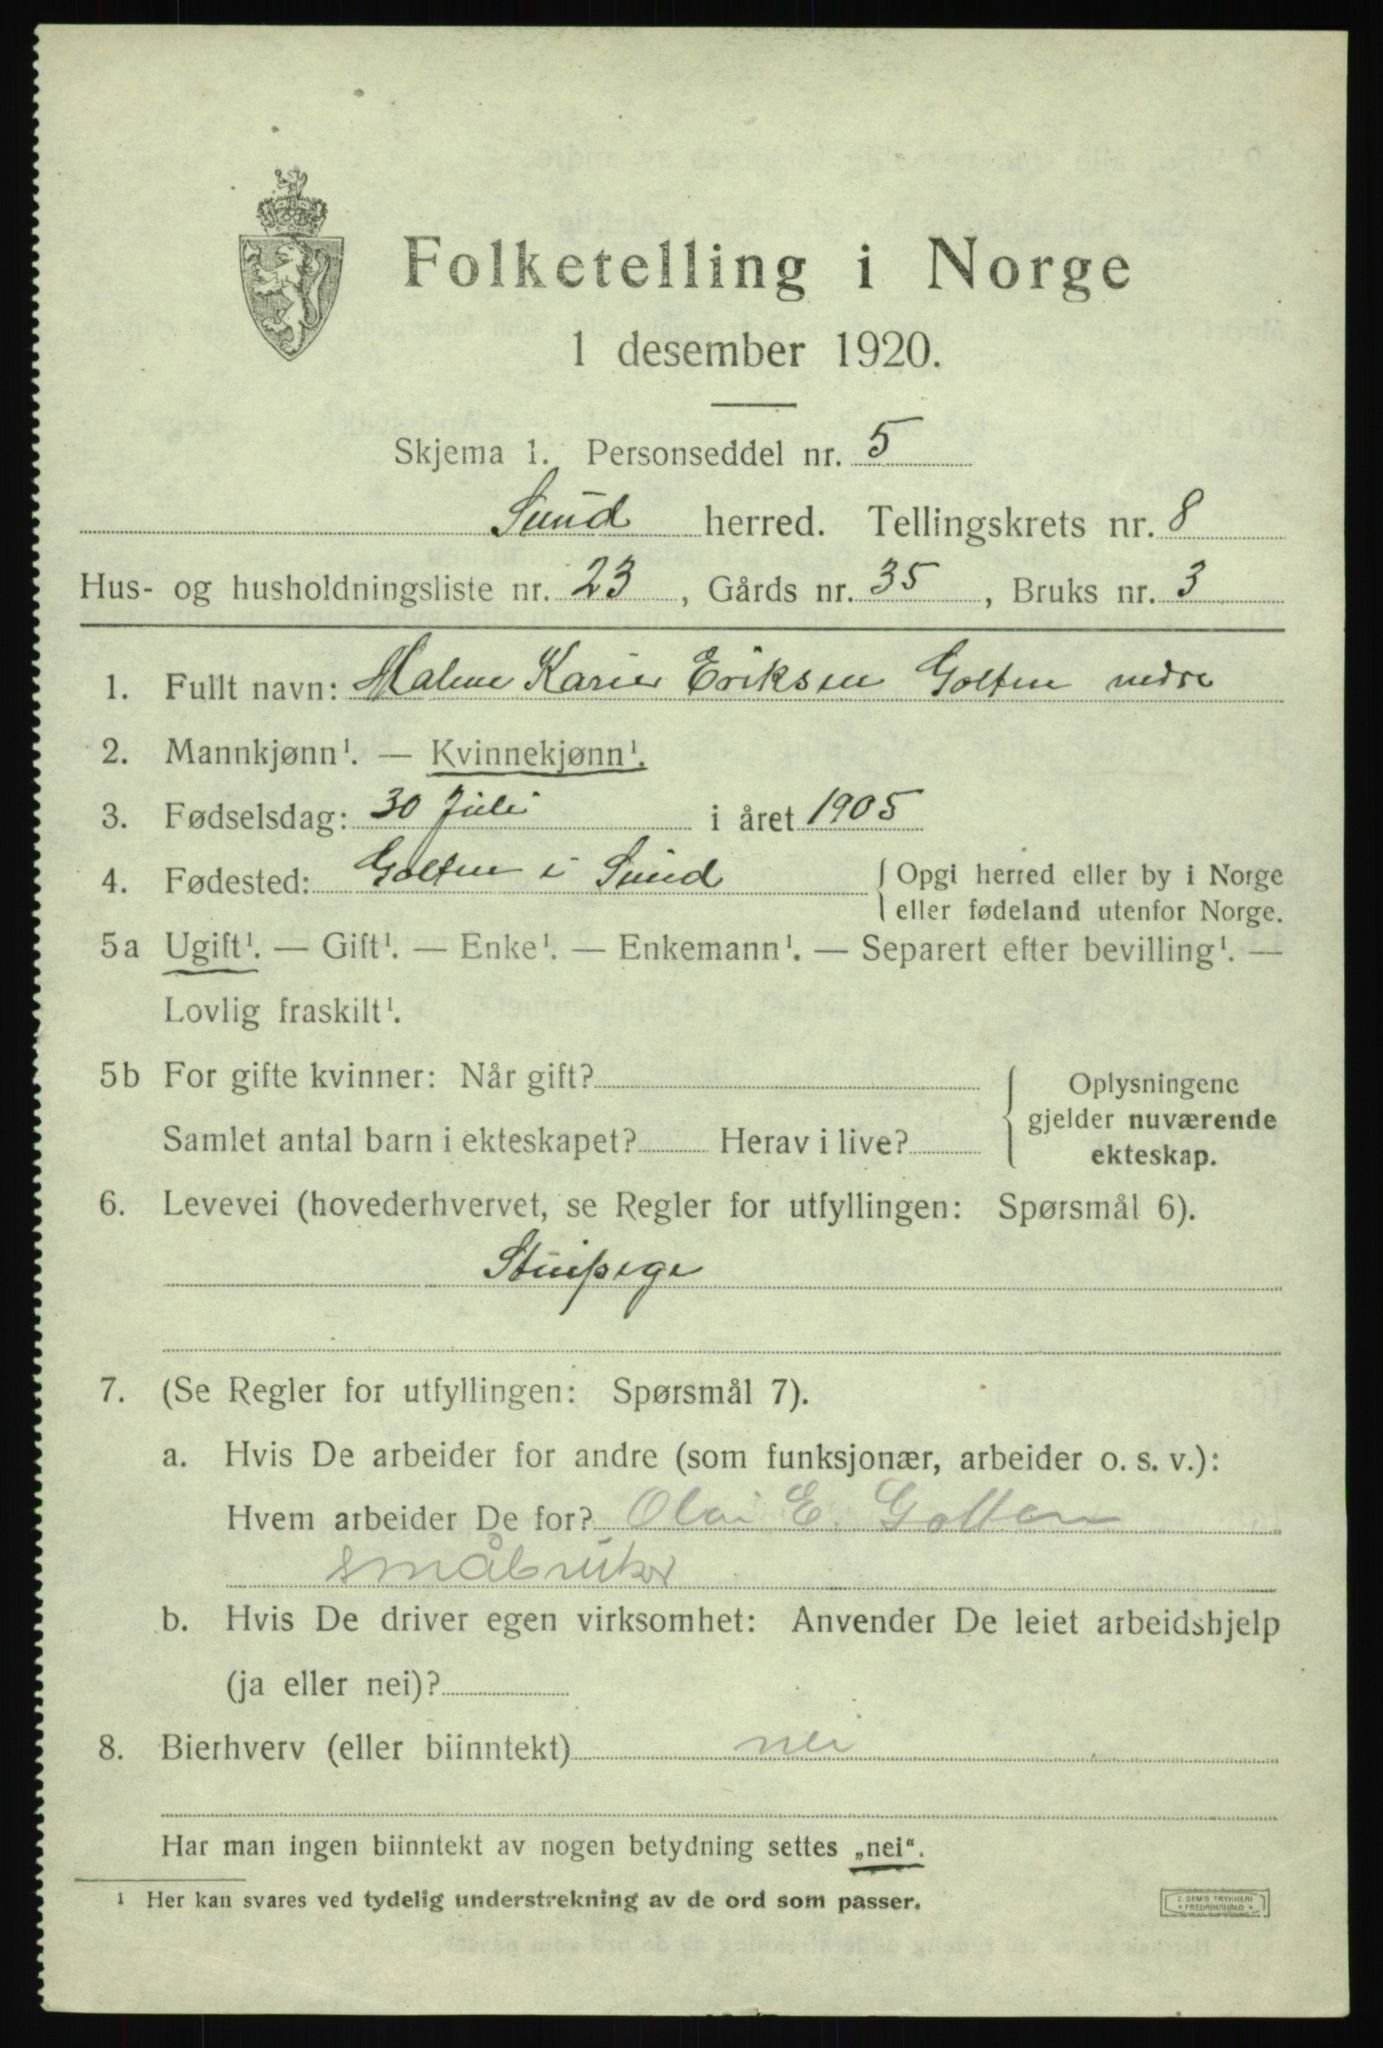 Folketelling i Norge
1 desember 1920.
Skjema 1. Personseddel nr. 5
Sund herred. Tellingskrets nr. 8
Hus- og husholdningsliste nr. 23, Gårds nr. 35, Bruks nr. 3
1. Fullt navn: Malene Karine Eriksen Golten nedre
2. Mannkjønn¹. — Kvinnekjønn¹.
3. Fødselsdag: 30 Juli i året 1905
4. Fødested: Golten i Sund { Opgi herred eller by i Norge
eller fødeland utenfor Norge.
5a Ugift¹. — Gift¹. — Enke¹. — Enkemann¹. — Separert efter bevilling¹. —
Lovlig fraskilt¹.
5b For gifte kvinner: Når gift?
Samlet antal barn i ekteskapet? Herav i live?
Oplysningene
gjelder nuværende
ekteskap.
6. Levevei (hovederhvervet, se Regler for utfyllingen: Spørsmål 6).
Stuepige
7. (Se Regler for utfyllingen: Spørsmål 7).
a. Hvis De arbeider for andre (som funksjonær, arbeider o. s. v.):
Hvem arbeider De for? Olai E. Golten
småbruker
b. Hvis De driver egen virksomhet: Anvender De leiet arbeidshjelp
(ja eller nei)?
8. Bierhverv (eller biinntekt) nei
Har man ingen biinntekt av nogen betydning settes „nei“.
1 Her kan svares ved tydelig understrekning av de ord som passer.
Z. SEM'S TRYKKERI
* FREDRIKSHALD *